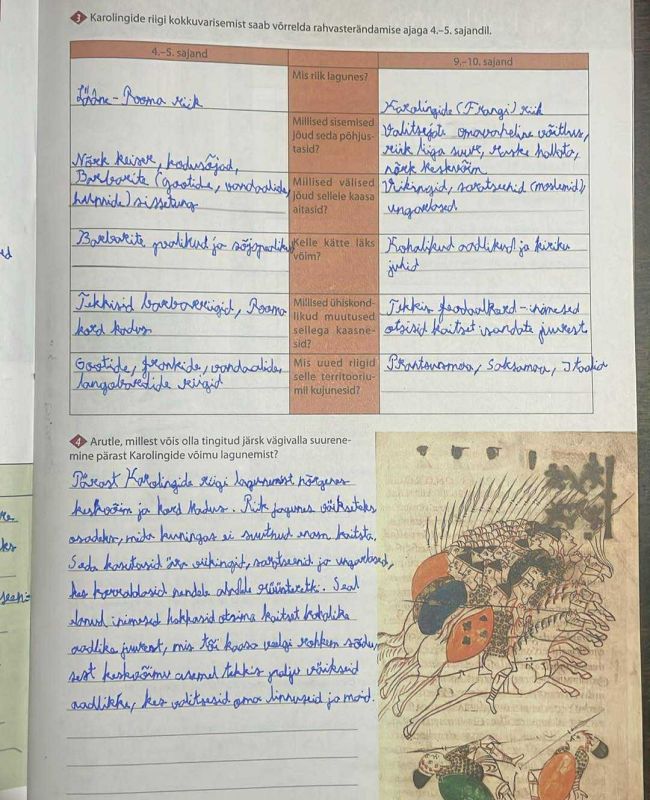 3 Karolingide riigi kokkuvarisemist saab võrrelda rahvasterändamise ajaga 4.–5. sajandil.
4.–5. sajand
9.–10. sajand
Mis riik lagunes?
Lääne-Rooma riik
Karolingide (Frangi) riik
Millised sisemised
jõud seda põhjus-
tasid?
Nõrk keiser, kodusõjad,
Valitsejate omavaheline võitlus,
riik liiga suur, raske hallata,
nõrk keskvõim
Millised välised
jõud sellele kaasa
aitasid?
Barbarite (gootide, vandaalide,
hunnide) sissetung
Viikingid, saratseenid (moslemid)
ungarlased
Kelle kätte läks
võim?
Barbarite pealikud ja sõjapealikud
Kohalikud aadlikud ja kiriku
juhid
Millised ühiskond-
likud muutused
sellega kaasne-
sid?
Tekkisid barbaririigid, Rooma
kord kadus
Tekkis feodaalkord – inimesed
otsisid kaitset isandate juurest
Mis uued riigid
selle territooriu-
mil kujunesid?
Gootide, frankide, vandaalide,
langobardide riigid
Prantsusmaa, Saksamaa, Itaalia
4 Arutle, millest võis olla tingitud järsk vägivalla suurene-
mine pärast Karolingide võimu lagunemist?
Pärast Karolingide riigi lagunemist nõrgenes
keskvõim ja kord kadus. Riik jagunes väikesteks
osadeks, mida kuningas ei suutnud enam kaitsta.
Seda kasutasid ära viikingid, saratseenid ja ungarlased,
kes korraldasid nendele aladele rüüsteretki. Seal
elanud inimesed hakkasid otsima kaitset kohalike
aadlike juurest, mis tõi kaasa veelgi rohkem sõdu,
sest keskvõimu asemel tekkis palju väikseid
aadlikke, kes valitsesid oma linnuseid ja maid.